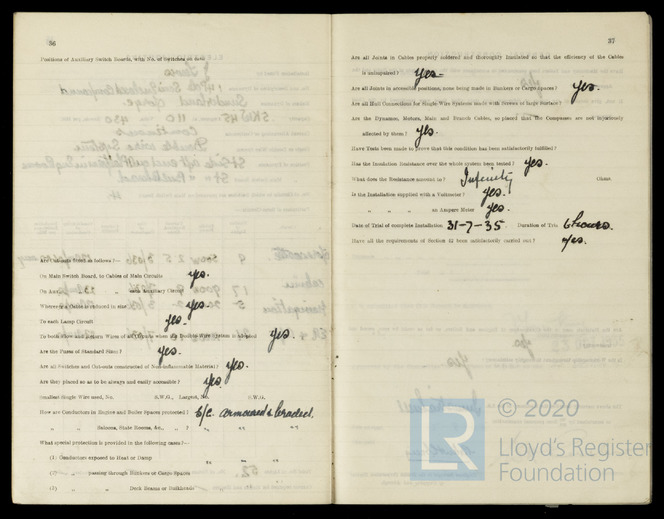 36
Positions of Auxiliary Switch Boards, with No. of Switches on each
Are Cut-outs fitted as follows?—
On Main Switch Board, to Cables of Main Circuits yes.
On Aux. " " each Auxiliary Circuit yes.
Wherever a Cable is reduced in size yes.
To each Lamp Circuit yes.
To both Flow and Return Wires of all Circuits when the Double Wire System is adopted yes.
Are the Fuses of Standard Sizes? yes.
Are all Switches and Cut-outs constructed of Non-inflammable Material? yes.
Are they placed so as to be always and easily accessible? yes
Smallest Single Wire used, No. S.W.G., Largest, No. S.W.G.
How are Conductors in Engine and Boiler Spaces protected? L/C. armoured & braided.
" " Saloons, State Rooms, &c., " ? " " "
What special protection is provided in the following cases?—
(1) Conductors exposed to Heat or Damp " " "
(2) " passing through Bunkers or Cargo Spaces
(3) " " Deck Beams or Bulkheads
37
Are all Joints in Cables properly soldered and thoroughly insulated so that the efficiency of the Cables
is unimpaired? yes.
Are all Joints in accessible positions, none being made in Bunkers or Cargo Spaces? yes.
Are all Hull Connections for Single Wire Systems made with Screws of large Surface?
Are the Dynamos, Motors, Main and Branch Cables, so placed that the Compasses are not injuriously
affected by them? yes.
Have Tests been made to prove that this condition has been satisfactorily fulfilled?
Has the Insulation Resistance over the whole system been tested? yes.
What does the Resistance amount to? Infinity Ohms.
Is the Installation supplied with a Voltmeter? yes.
" " " an Ampere Meter yes.
Date of Trial of complete Installation 31-7-35. Duration of Trial 6 hours.
Have all the requirements of Section 42 been satisfactorily carried out? yes.
LR
© 2020
Lloyd's Register
Foundation